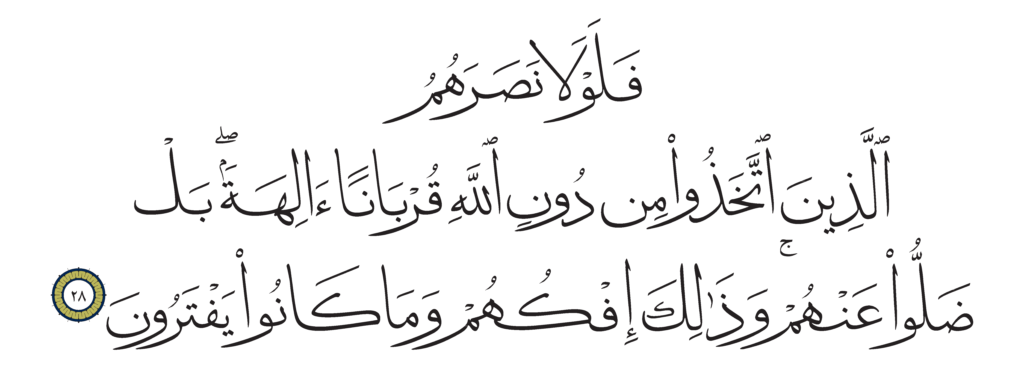 فَلَوْلَا نَصَرَهُمُ
ٱلَّذِينَ ٱتَّخَذُوا۟ مِن دُونِ ٱللَّهِ قُرْبَانًا ءَالِهَةًۢ ۖ بَلْ
ضَلُّوا۟ عَنْهُمْ ۚ وَذَٰلِكَ إِفْكُهُمْ وَمَا كَانُوا۟ يَفْتَرُونَ ٢٨